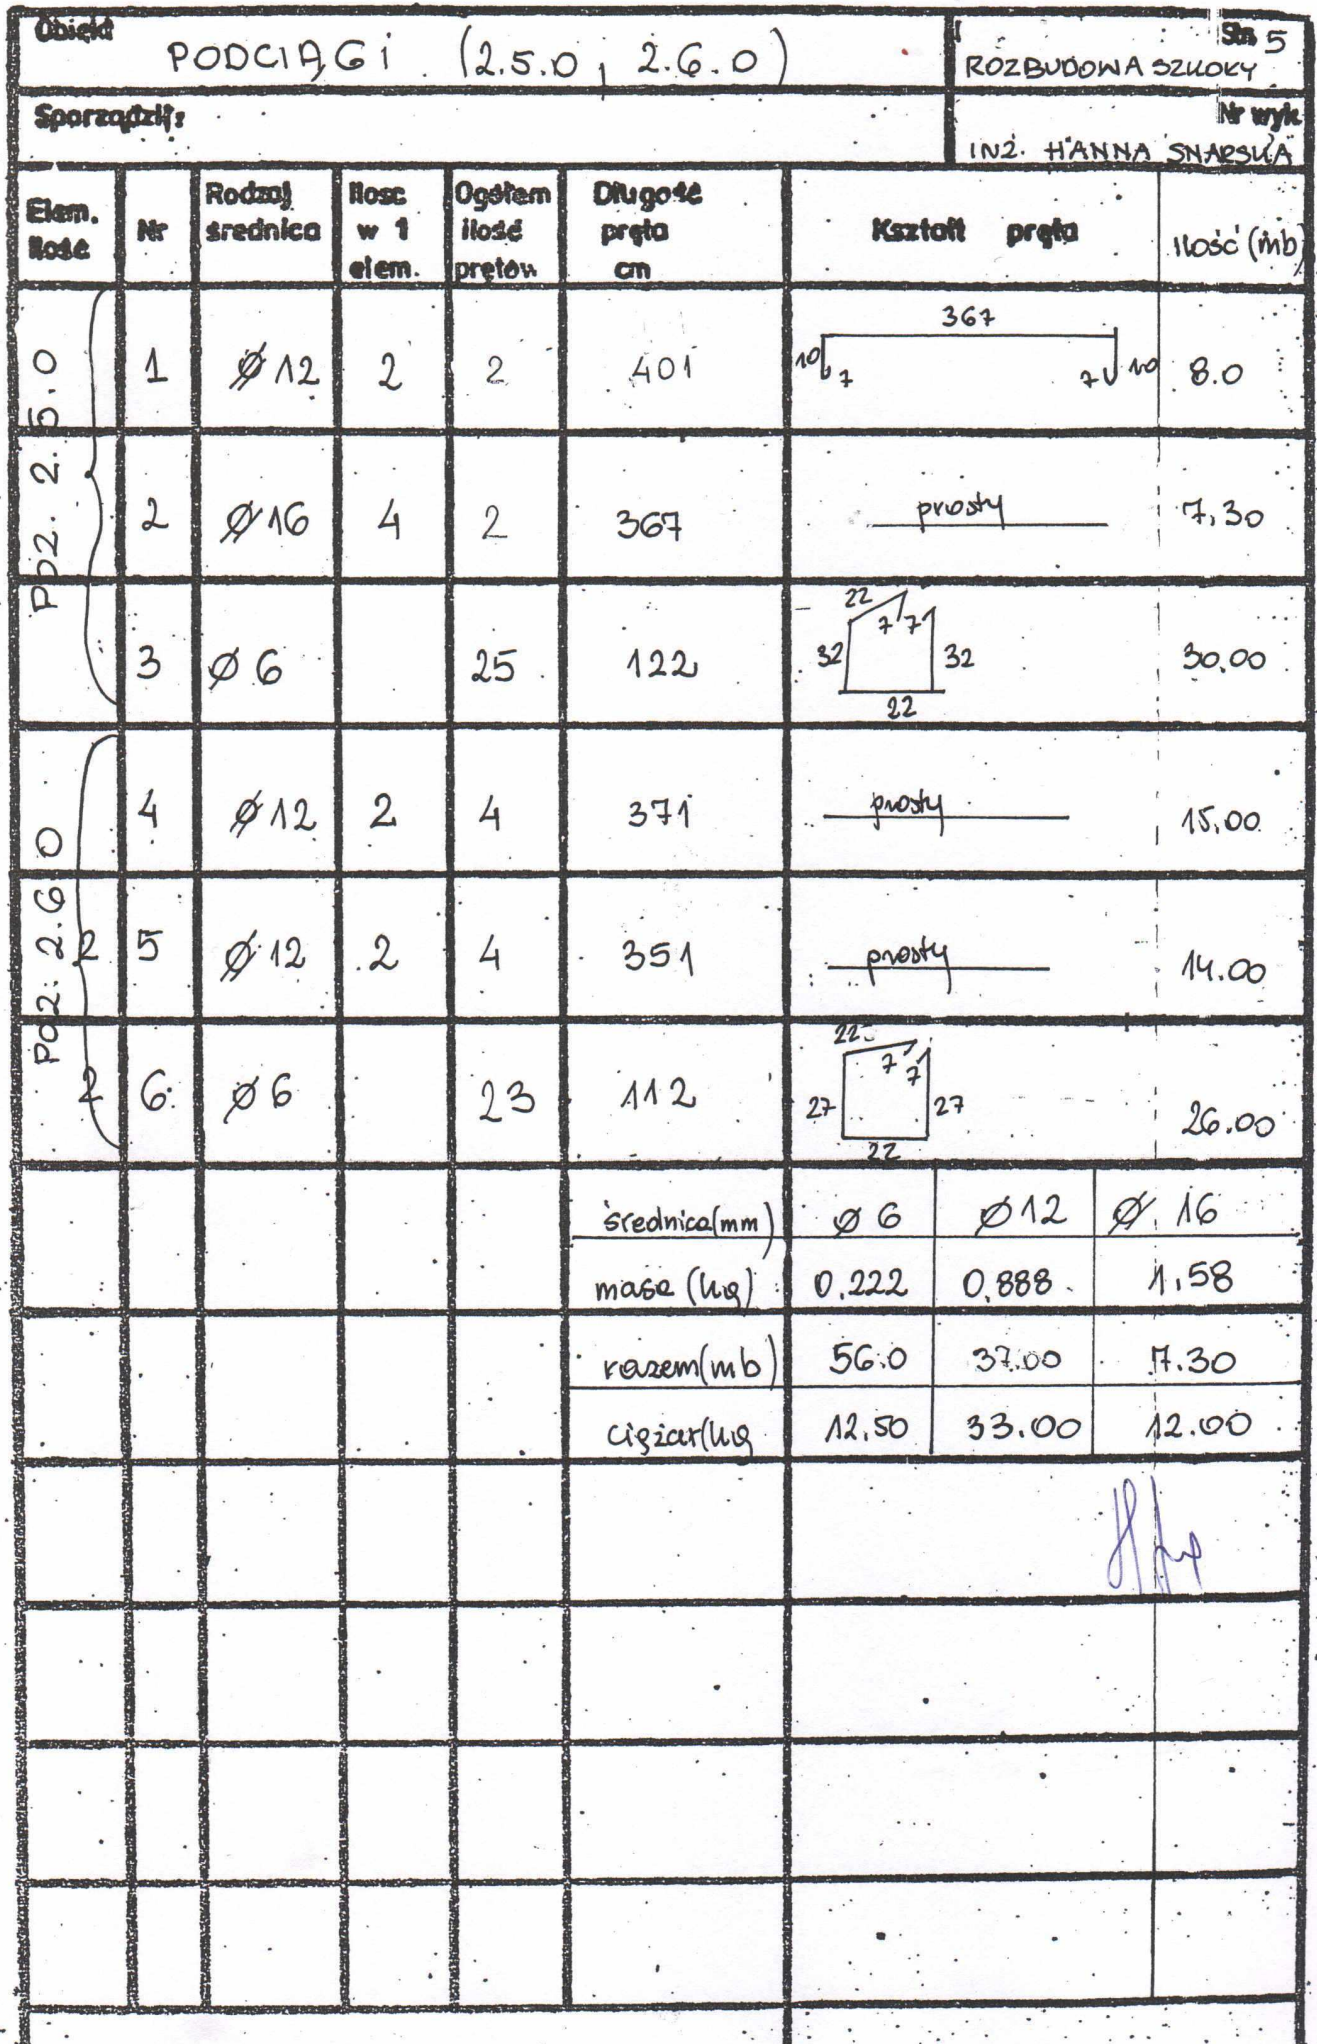 Obiekt PODCIĄGi (2.5.0, 2.6.0) Str. 5
ROZBUDOWA SZKOŁY
Sporządził: Nr wyk
INŻ. HANNA SNARSKA
Elem. ilość Nr Rodzaj średnica Ilosc w 1 elem. Ogółem ilość prętów Długość pręta cm Kształt pręta Ilość (mb)
POZ. 2.5.0
1 ∅12 2 2 401 367 10 7 7 10 8.0
2 ∅16 4 2 367 prosty 7,30
3 ∅6 25 122 22 7 7 32 32 22 30.00
POZ. 2.6.0
4 ∅12 2 4 371 prosty 15.00
2 5 ∅12 2 4 351 prosty 14.00
2 6 ∅6 23 112 22 7 7 27 27 22 26.00
średnica(mm) ∅6 ∅12 ∅ 16
masa (kg) 0.222 0.888 1.58
razem(mb) 56.0 37.00 7.30
ciężar(kg 12.50 33.00 12.00